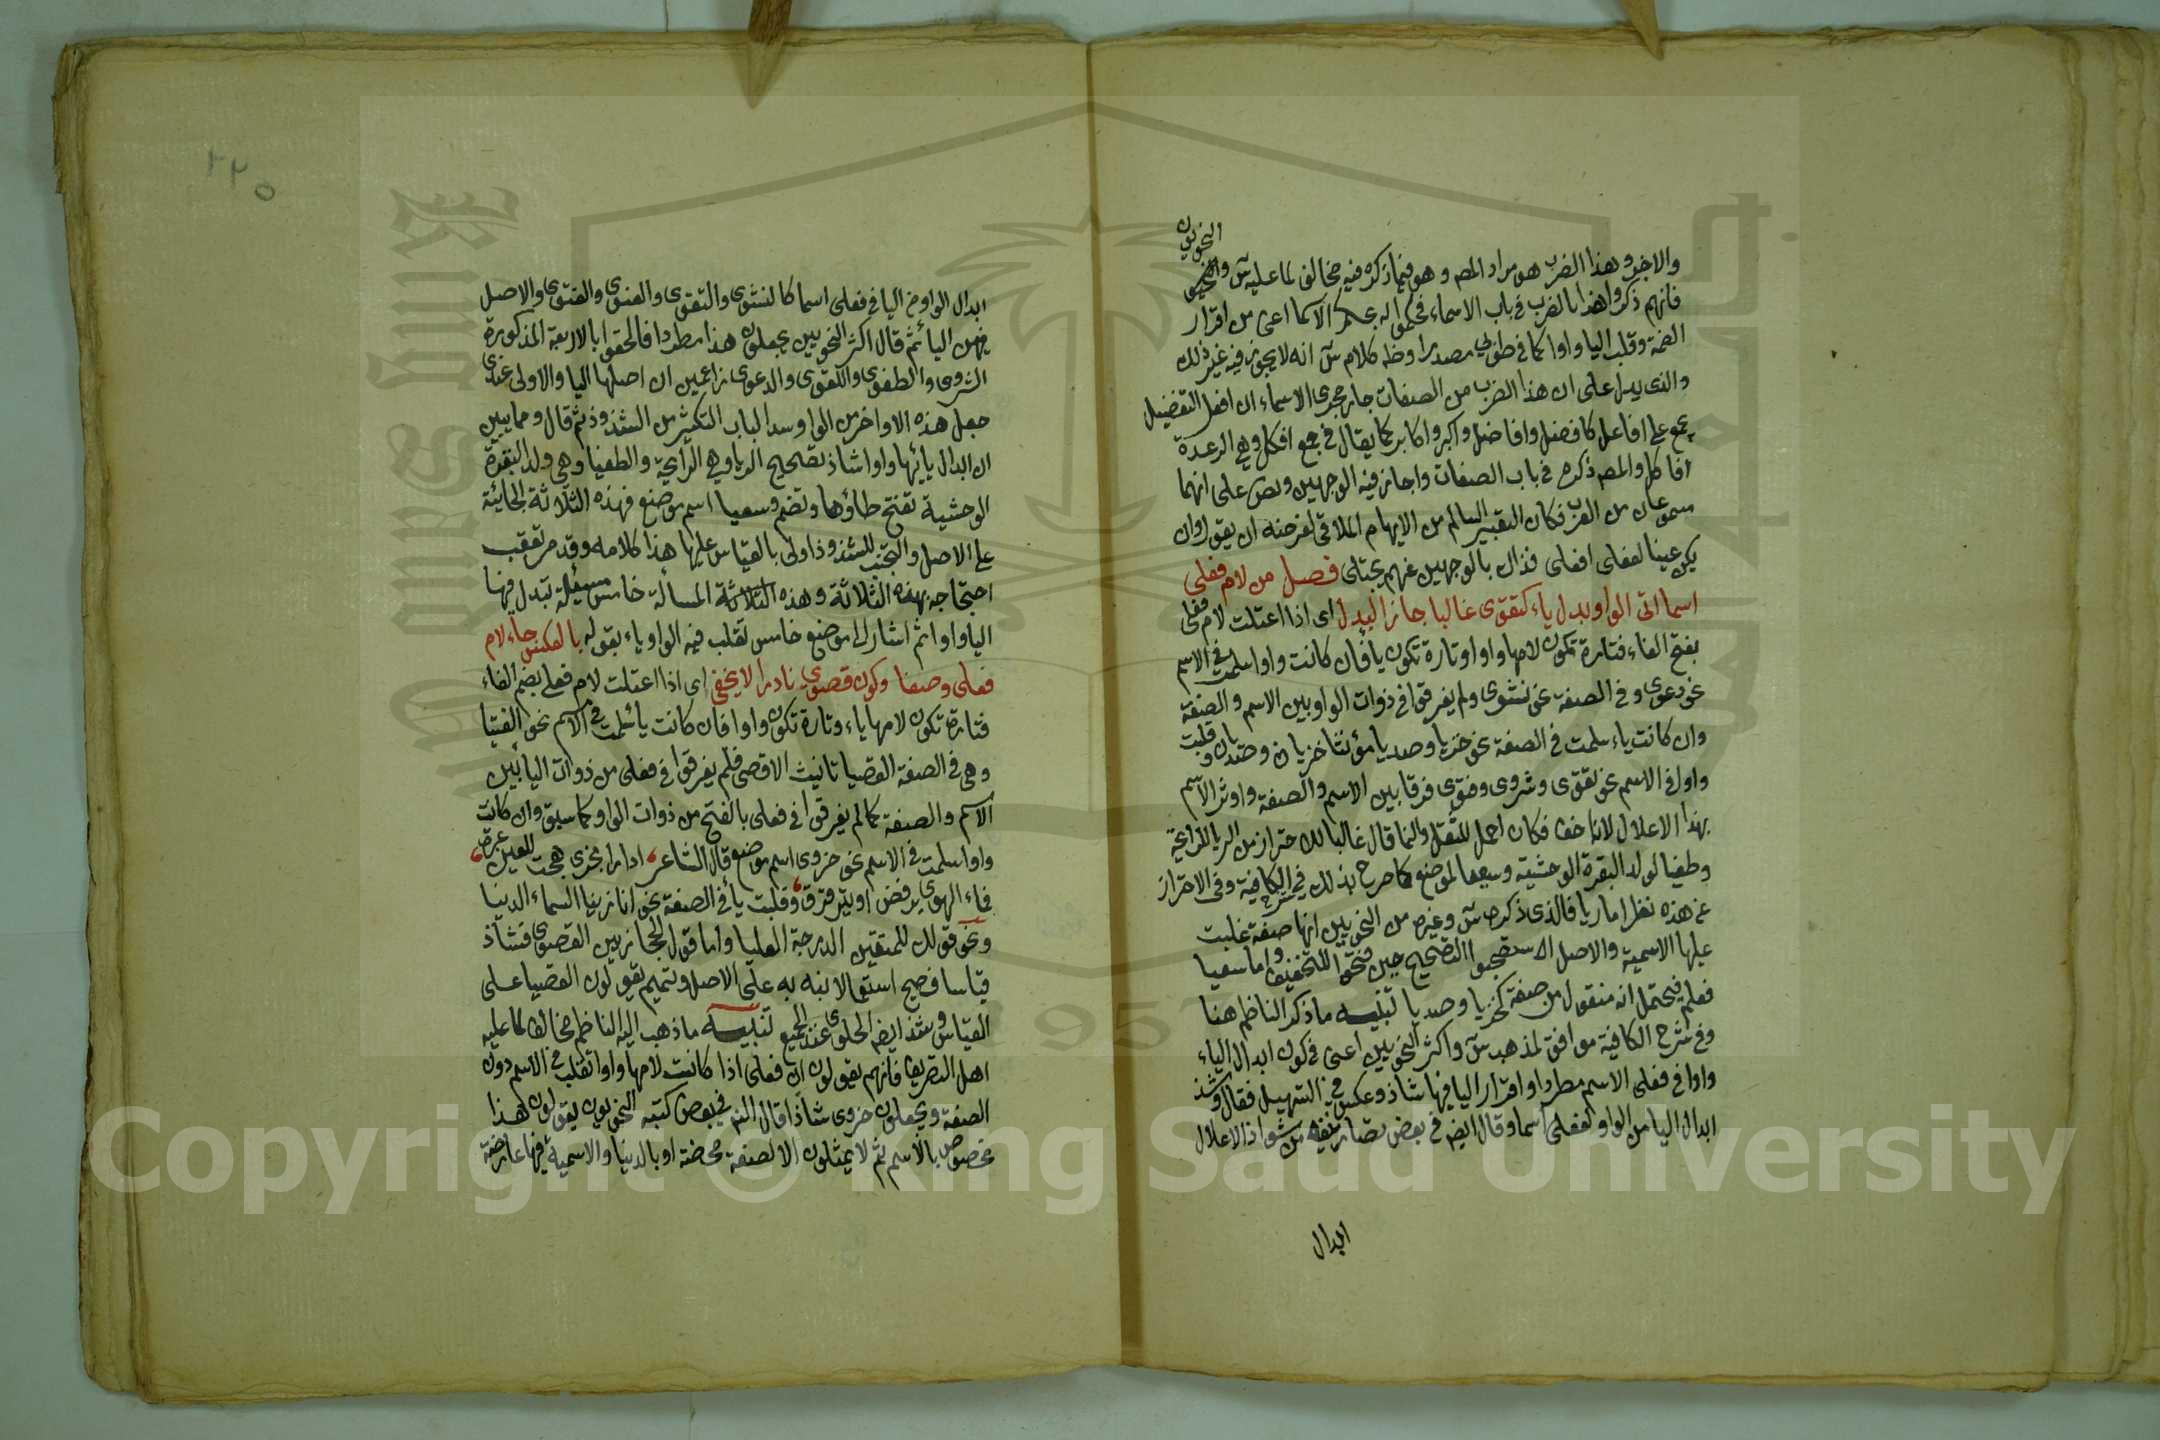 النحويون
والاجرد وهذا الضرب هو مراد المصم وهو فيما ذكره فيه مخالف لما عليه س
فانهم ذكروا هذا الضرب في باب الاسماء فحكموا له بحكم الاسماء اعنى من اقرار
الضمة وقلب اليا واوا كما في طوبى مصدرا وظ كلام س انه لا يجوز فيه غير ذلك
والذى يدل على ان هذا الضرب من الصفات جار مجرى الاسماء ان افعل التفضيل
يجمع على افاعل كافضل وافاضل واكبر واكابر كما يقال في جمع افكل وهي الرعدة
افاكل والمصم ذكره في باب الصفات واجاز فيه الوجهين ونص على انهما
مسموعان من العرب فكان التعبير السالم من الايهام الملاقى لغرضه ان يقول وان
يكن عينا لفعلى افعلى فذال بالوجهين عنهم يجتلى فصل من لام فعلى
اسما اتى الواو بدل ياء كتقوى غالبا جا ذا البدل اى اذا اعتلت لام فعلى
بفتح الفاء فتارة تكون لامها واوا وتارة تكون يا فان كانت واوا سلمت في الاسم
نحو دعوى وفي الصفة نحو نشوى ولم يفرقوا في ذوات الواو بين الاسم والصفة
وان كانت ياء سلمت في الصفة نحو خزيا وصديا مؤنثا خزيان وصديان وقلبت
واوا في الاسم نحو تقوى وشروى وفتوى فرقا بين الاسم والصفة واوثر الاسم
بهذا الاعلال لانه اخف فكان احمل للثقل وانما قال غالبا للاحتراز من الريا للرائحة
وطغيا لولد البقرة الوحشية وسعيا لموضع كما صرح بذلك في شرح الكافية وفى الاحتراز
عن هذه نظر اما ريا فالذى ذكره س وغيره من النحويين انها صفة غلبت
عليها الاسمية والاصل الاستصحبوا التصحيح حين فتحوا للتخفيف واما سعيا
فعلم فيحتمل انه منقول من صفة كخزيا وصديا تنبيه ما ذكر الناظم هنا
وفي شرح الكافية موافق لمذهب س واكثر النحويين اعنى في كون ابدال الياء
واوا في فعلى الاسم مطردا واقرار اليا فيها شاذ وعكس في التسهيل فقال وشذ
ابدال اليا من الواو لفعلى اسما وقال ايضم في بعض تصانيفه من شواذ الاعلال
ابدال
٢٢٥
ابدال الواو من اليا في فعلى اسما كالنشوى والتقوى والعنوى والفتوى والاصل
فيهن اليا ثم قال اكثر النحويين يجعلون هذا مطردا فالحقوا بالاربعة المذكورة
الشروى والطغوى واللقوى والدعوى زاعمين ان اصلها اليا والاولى عندى
جعل هذه الاواخر من الواو سدا لباب التكثير من الشذوذ ثم قال ومما يبين
ان ابدال يائها واوا شاذ تصحيح الريا وهي الرائحة والطغيا وهي ولد البقرة
الوحشية تفتح طاؤها وتضم وسعيا اسم موضع فهذه الثلاثة الجائية
على الاصل والتجنب للشذوذ اولى بالقياس عليها هذا كلامه وقد مر تعقب
احتجاجه بهذه الثلاثة وهذه المسالة خامس مسئلة تبدل فيها
اليا واوا ثم اشار الى موضع خامس تقلب فيه الواو ياء بقوله بالعكس جاء لام
فعلى وصفا وكون قصوى نادرا لا يخفى اى اذا اعتلت لام فعلى بضم الفاء
فتارة تكون لامها ياء وتارة تكون واوا فان كانت يا سلمت في الاسم نحو الفتيا
وهي في الصفة القصيا تانيث الاقصى فلم يفرقوا في فعلى من ذوات اليا بين
الاسم والصفة كما لم يفرقوا في فعلى بالفتح من ذوات الواو كما سبق وان كانت
واوا سلمت في الاسم نحو حزوى اسم موضع قال الشاعر ادارا بحزوى هجت للعين عبرة
فماء الهوى يرفض او يترقرق وقلبت يا في الصفة نحو انا زينا السماء الدنيا
ونحو قولك للمتقين الدرجة العليا واما قول الحجازيين القصوى فشاذ
قياسا فصيح استعمالا نبه به على الاصل وتميم يقولون القصيا على
القياس وشذ ايضم الحلوى عند الجميع تنبيه ما ذهب اليه الناظم مخالف لما عليه
اهل التصريف فانهم يقولون ان فعلى اذا كانت لامها واوا تقلب في الاسم دون
الصفة ويجعلون حزوى شاذا قال النم في بعض كتبه النحويون يقولون هذا
مخصوص بالاسم ثم لا يمثلون الا لصفة محضة او بالدنيا والاسمية فيها عارضة
Copyright © King Saud University
1957